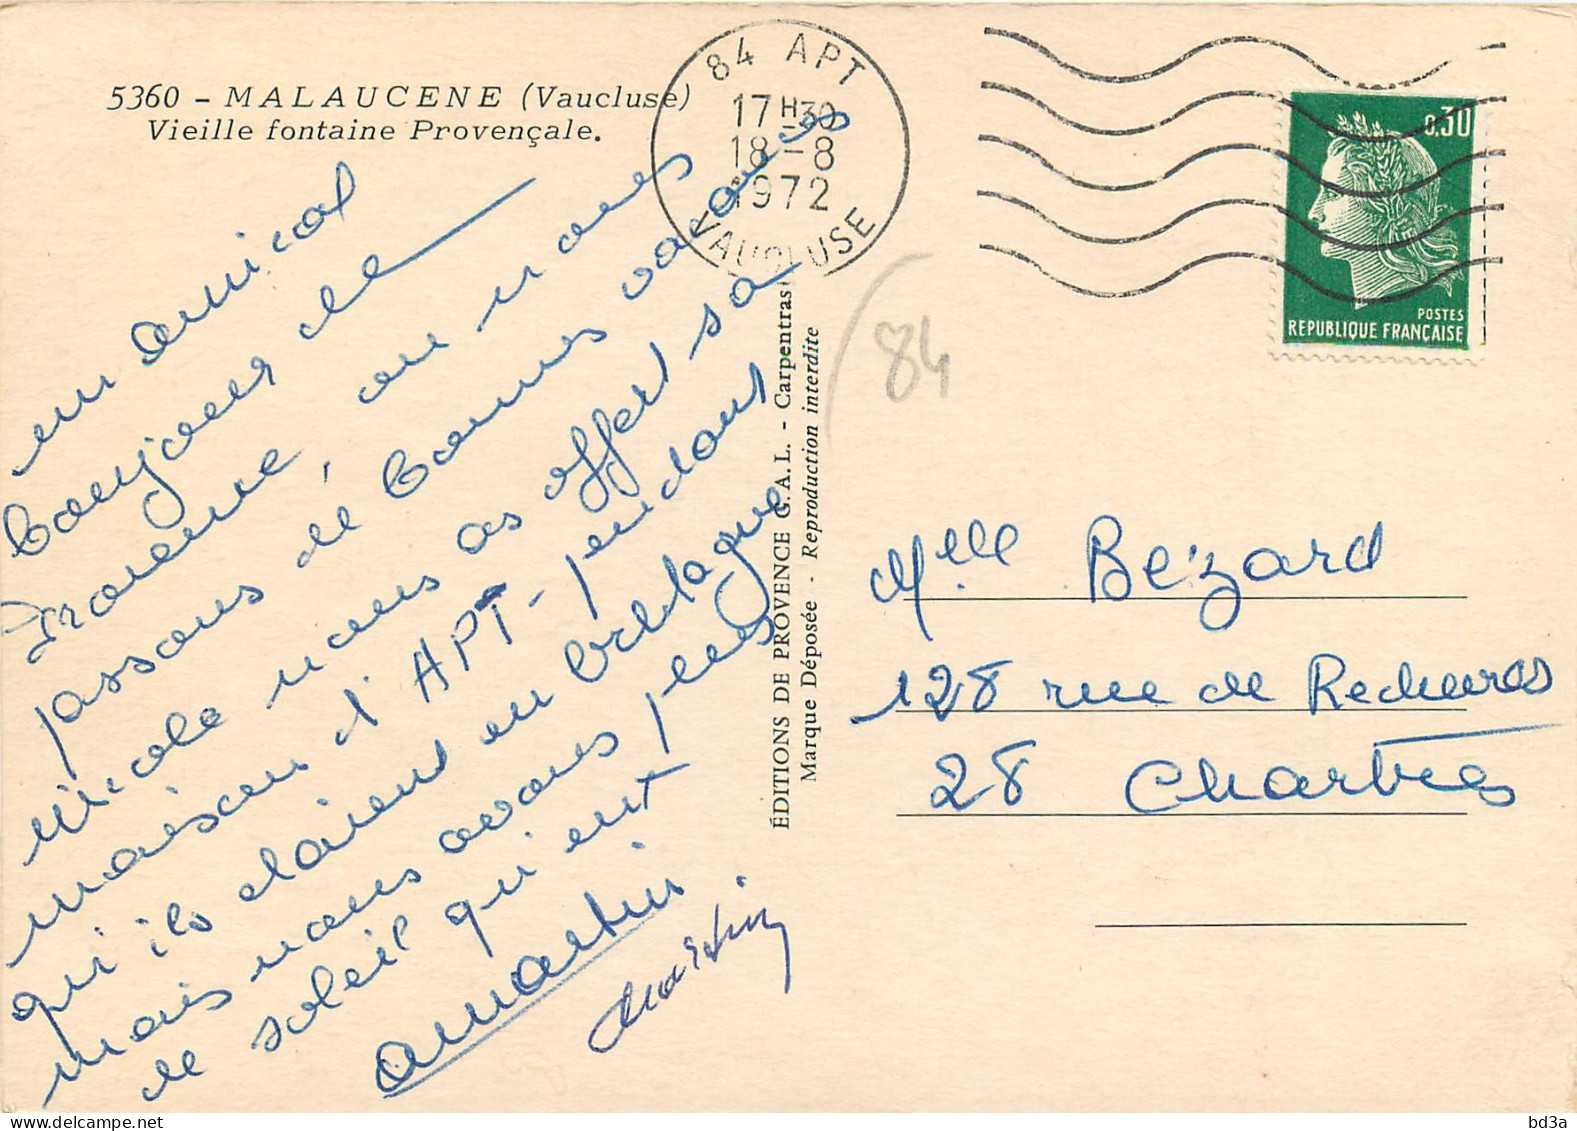 5360 - MALAUCENE (Vaucluse)
Vieille fontaine Provençale.
84 APT
17 H 30
18 - 8
1972
VAUCLUSE
0,30
POSTES
REPUBLIQUE FRANÇAISE
84
un amical
bonjour de
Provence, ou nous
passons de bonnes vacances
Nicole nous as offert sa
maison d'APT - pendant
qu'ils étaient en Bretagne
mais nous avons plus
de soleil qu'eux
Martin
Martin
ÉDITIONS DE PROVENCE G.A.L. - Carpentras
Marque Déposée - Reproduction interdite
Melle Bézard
128 rue de Rechèvres
28 Chartres
bd3a